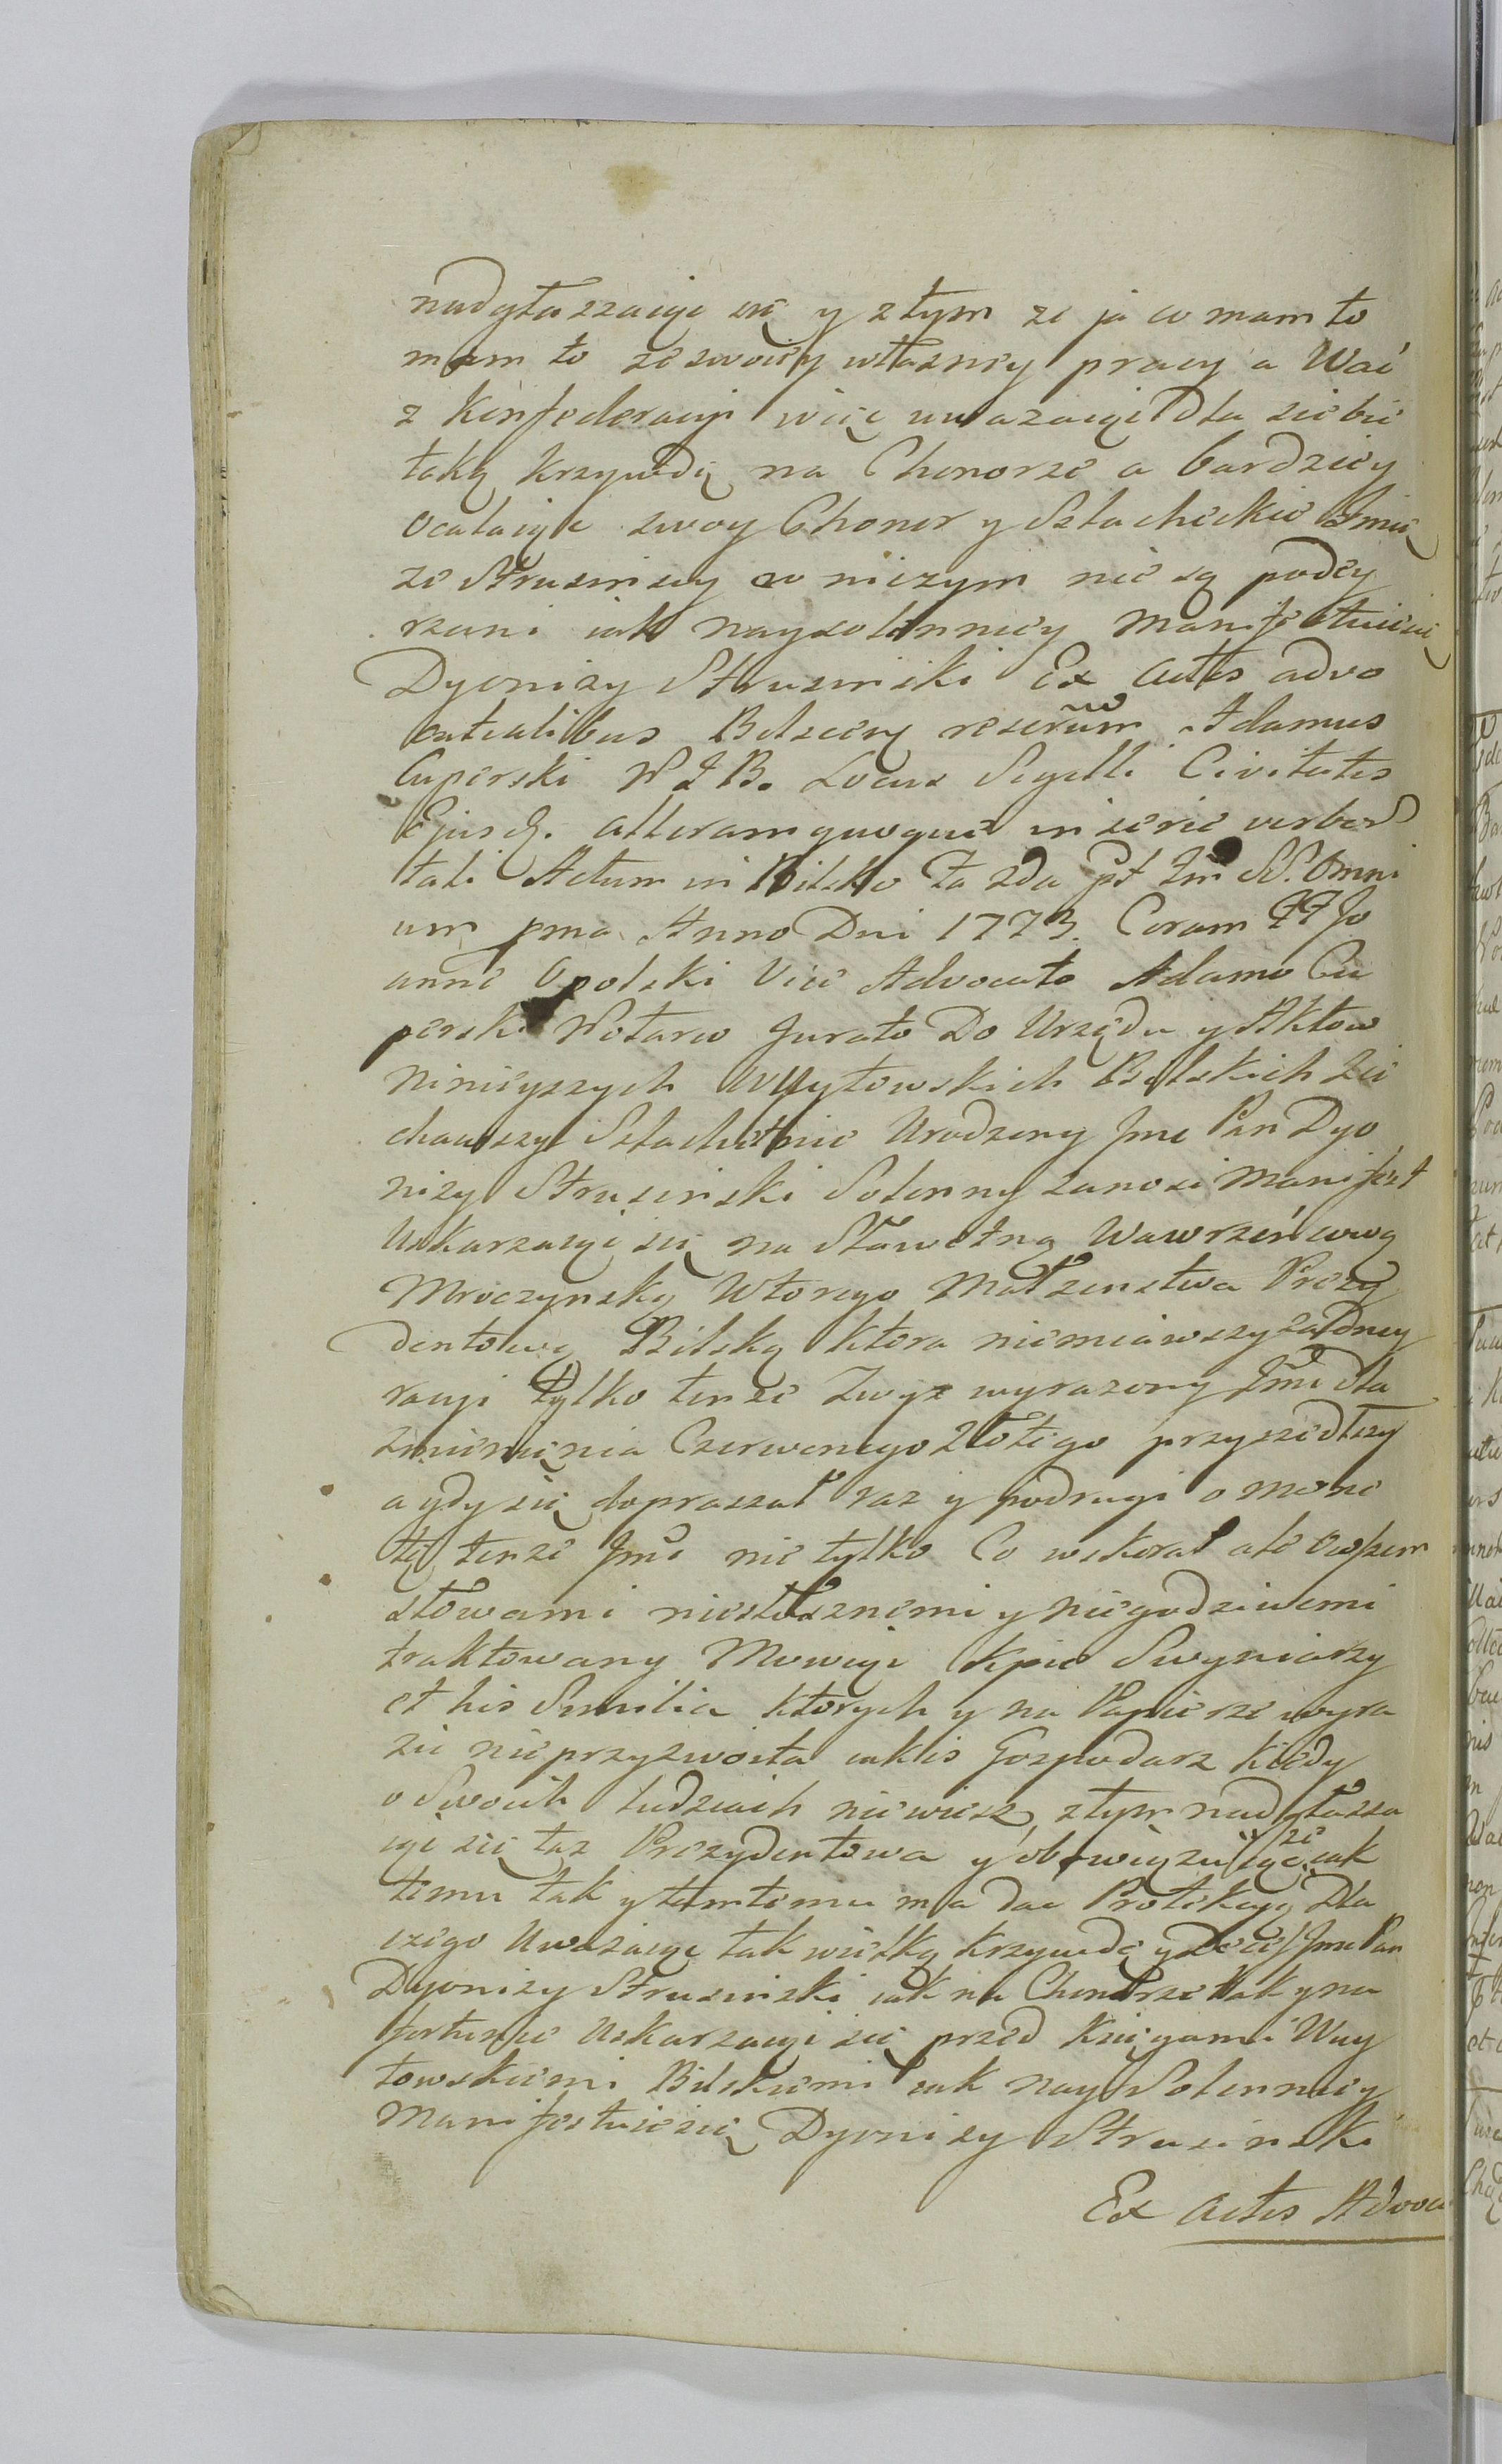 nadgłaszaiąc się y z tym ze ja co mam to
mam to ze swoiey własney pracy a Wać
z Konfederacyi więc uwazaiąc dla siebie
taką krzywdę na Chonorze a bardziey
ocalaiąc swoy Chonor y Szlacheckie Imie
ze Strusinscy w niczym nie są podey
rzani iak naysolenniey Manifestuie się
Dyonizy Strusinski Ex Actis advo
catialibus Bilscen reserũm Adamus
Cuperski N I B. Locus Sigilli Civitatis
Ejusd. alteramquoque in serie verbor
tali Actum in Bilsko fa 2da pt fm SS. Omni
um pma Anno Dni 1773. Coram FF Jo
anne Opolski Vice Advocato Adamo Cu
perski Notario Jurato Do Urzędu y Aktow
ninieyszych Wuytowskich Bilskich Zie
chawszy Szlachetnie Urodzony Jmc Pan Dyo
nizy Strusinski Solenny zanosi Manifest
Uskarzaiąc się na Sławetną Wawrzeńcową
Mroczynską Wtorego Małzenstwa Prezy
dentową Bilską ktora niemiawszy zadney
racyi tylko tenze Zwyz wyrazony Jmć dla
zmienienia Czerwonego Złotego przyszedłszy
a gdy się dopraszał raz y podrugi o mone
tę tenze Jmć nie tylko Co wskorał ale owszem
słowami niesłusznemi y niegodziwemi
traktowany Mowiąc Kpie Swyniarzy
et his Similia ktorych y na Papierze wyra
zic nieprzyzwoita iakis Gospodarz kiedy
o Swoich ludziach niewiesz, z tym nadgłasza
iąc się taz Prezydentowa y obowięzuiąc się ze iak
temu tak y tamtemu ma dac Protekcyą Dla
czego Uwazaiąc tak wielką krzywdę y Jmc Pan
Dyonizy Strusinski iak na Chonorze tak y na
fortunie Uskarzaiąc się przed Xięgami Wuy
towskiemi Bilskiemi iak nay Solenniey
Manifestuie się Dyonizy Strusinski
Ex Actis Advoca